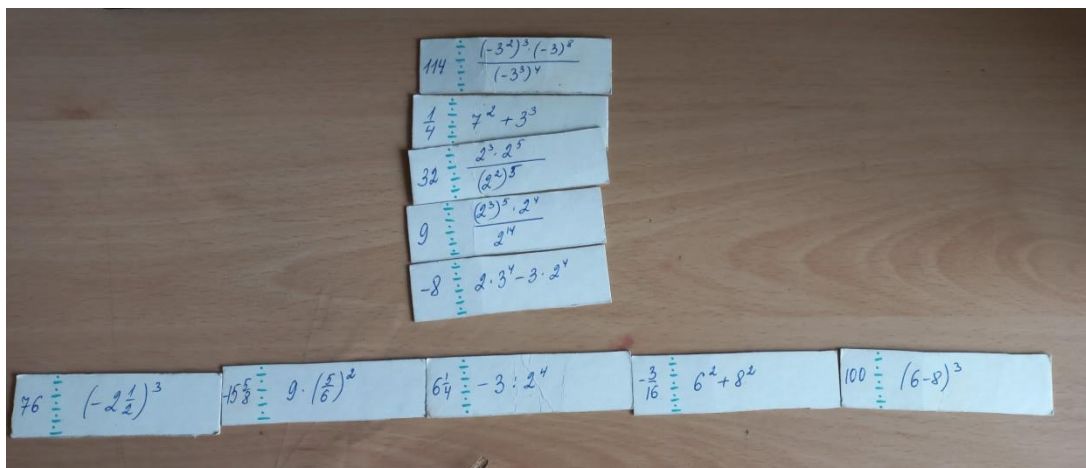 114 (-3²)³·(-3)⁸/(-3³)⁴
1/4 7² + 3³
32 2³·2⁵/(2²)⁵
9 (2³)⁵·2⁴/2¹⁴
-8 2·3⁴-3·2⁴
76 (-2 1/2)³ -15 5/8 9·(5/6)² 6 1/4 -3:2⁴ -3/16 6²+8² 100 (6-8)³